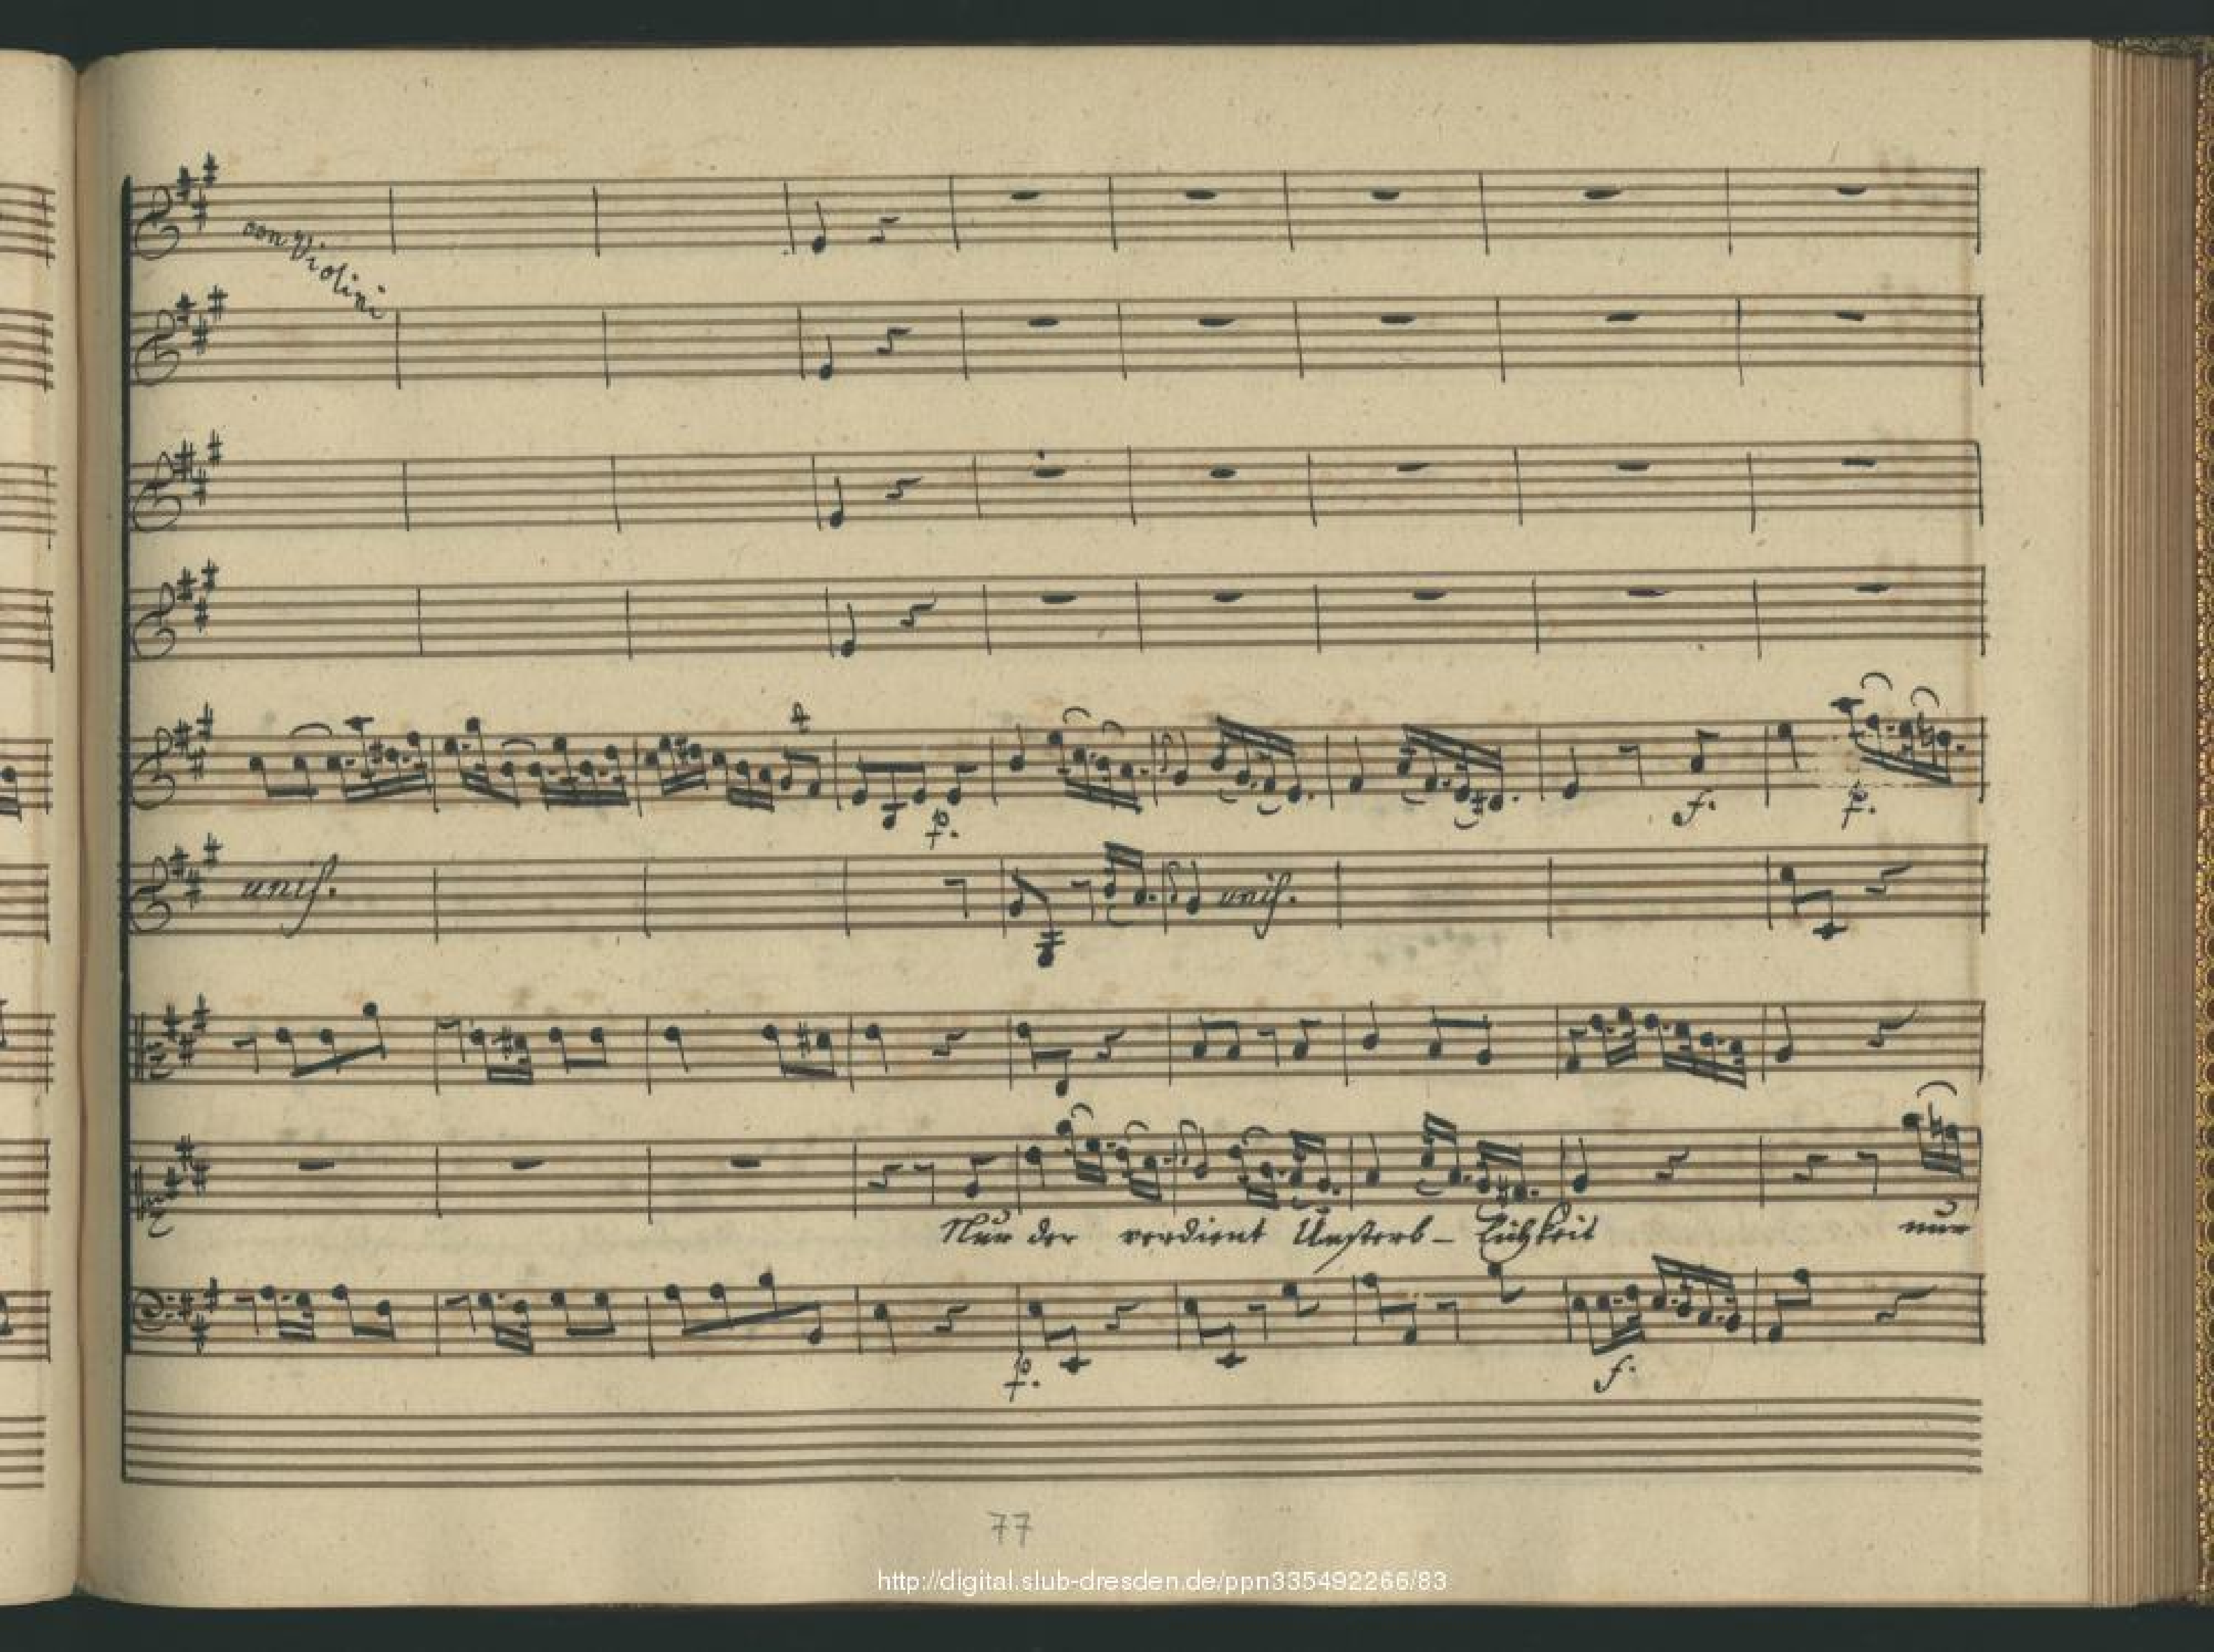 con Violini
p.
f.
p.
unis.
unis.
Nur der verdient Unsterb- lichkeit nur
p.
f.
77
http://digital.slub-dresden.de/ppn335492266/83